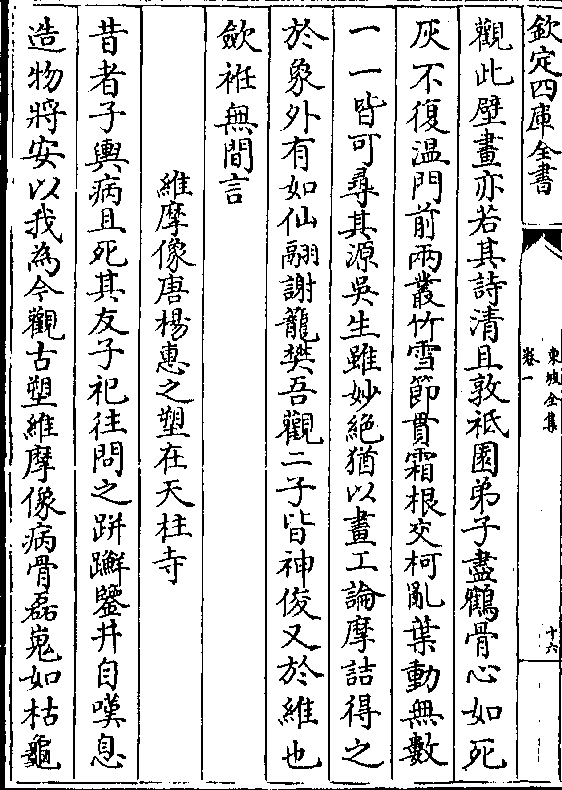 欽定四庫全書
東坡全集
卷一
十六
觀此壁畫亦若其詩清且敦祗園弟子盡鶴骨心如死
灰不復温門前兩叢竹雪節貫霜根交柯亂葉動無數
一一皆可尋其源吳生雖妙絶猶以畫工論摩詰得之
於象外有如仙翮謝籠樊吾觀二子皆神俊又於維也
歛袵無間言
維摩像唐楊惠之塑在天柱寺
昔者子輿病且死其友子祀往問之跰𨇤鑒井自嘆息
造物將安以我為今觀古塑維摩像病骨磊嵬如枯龜